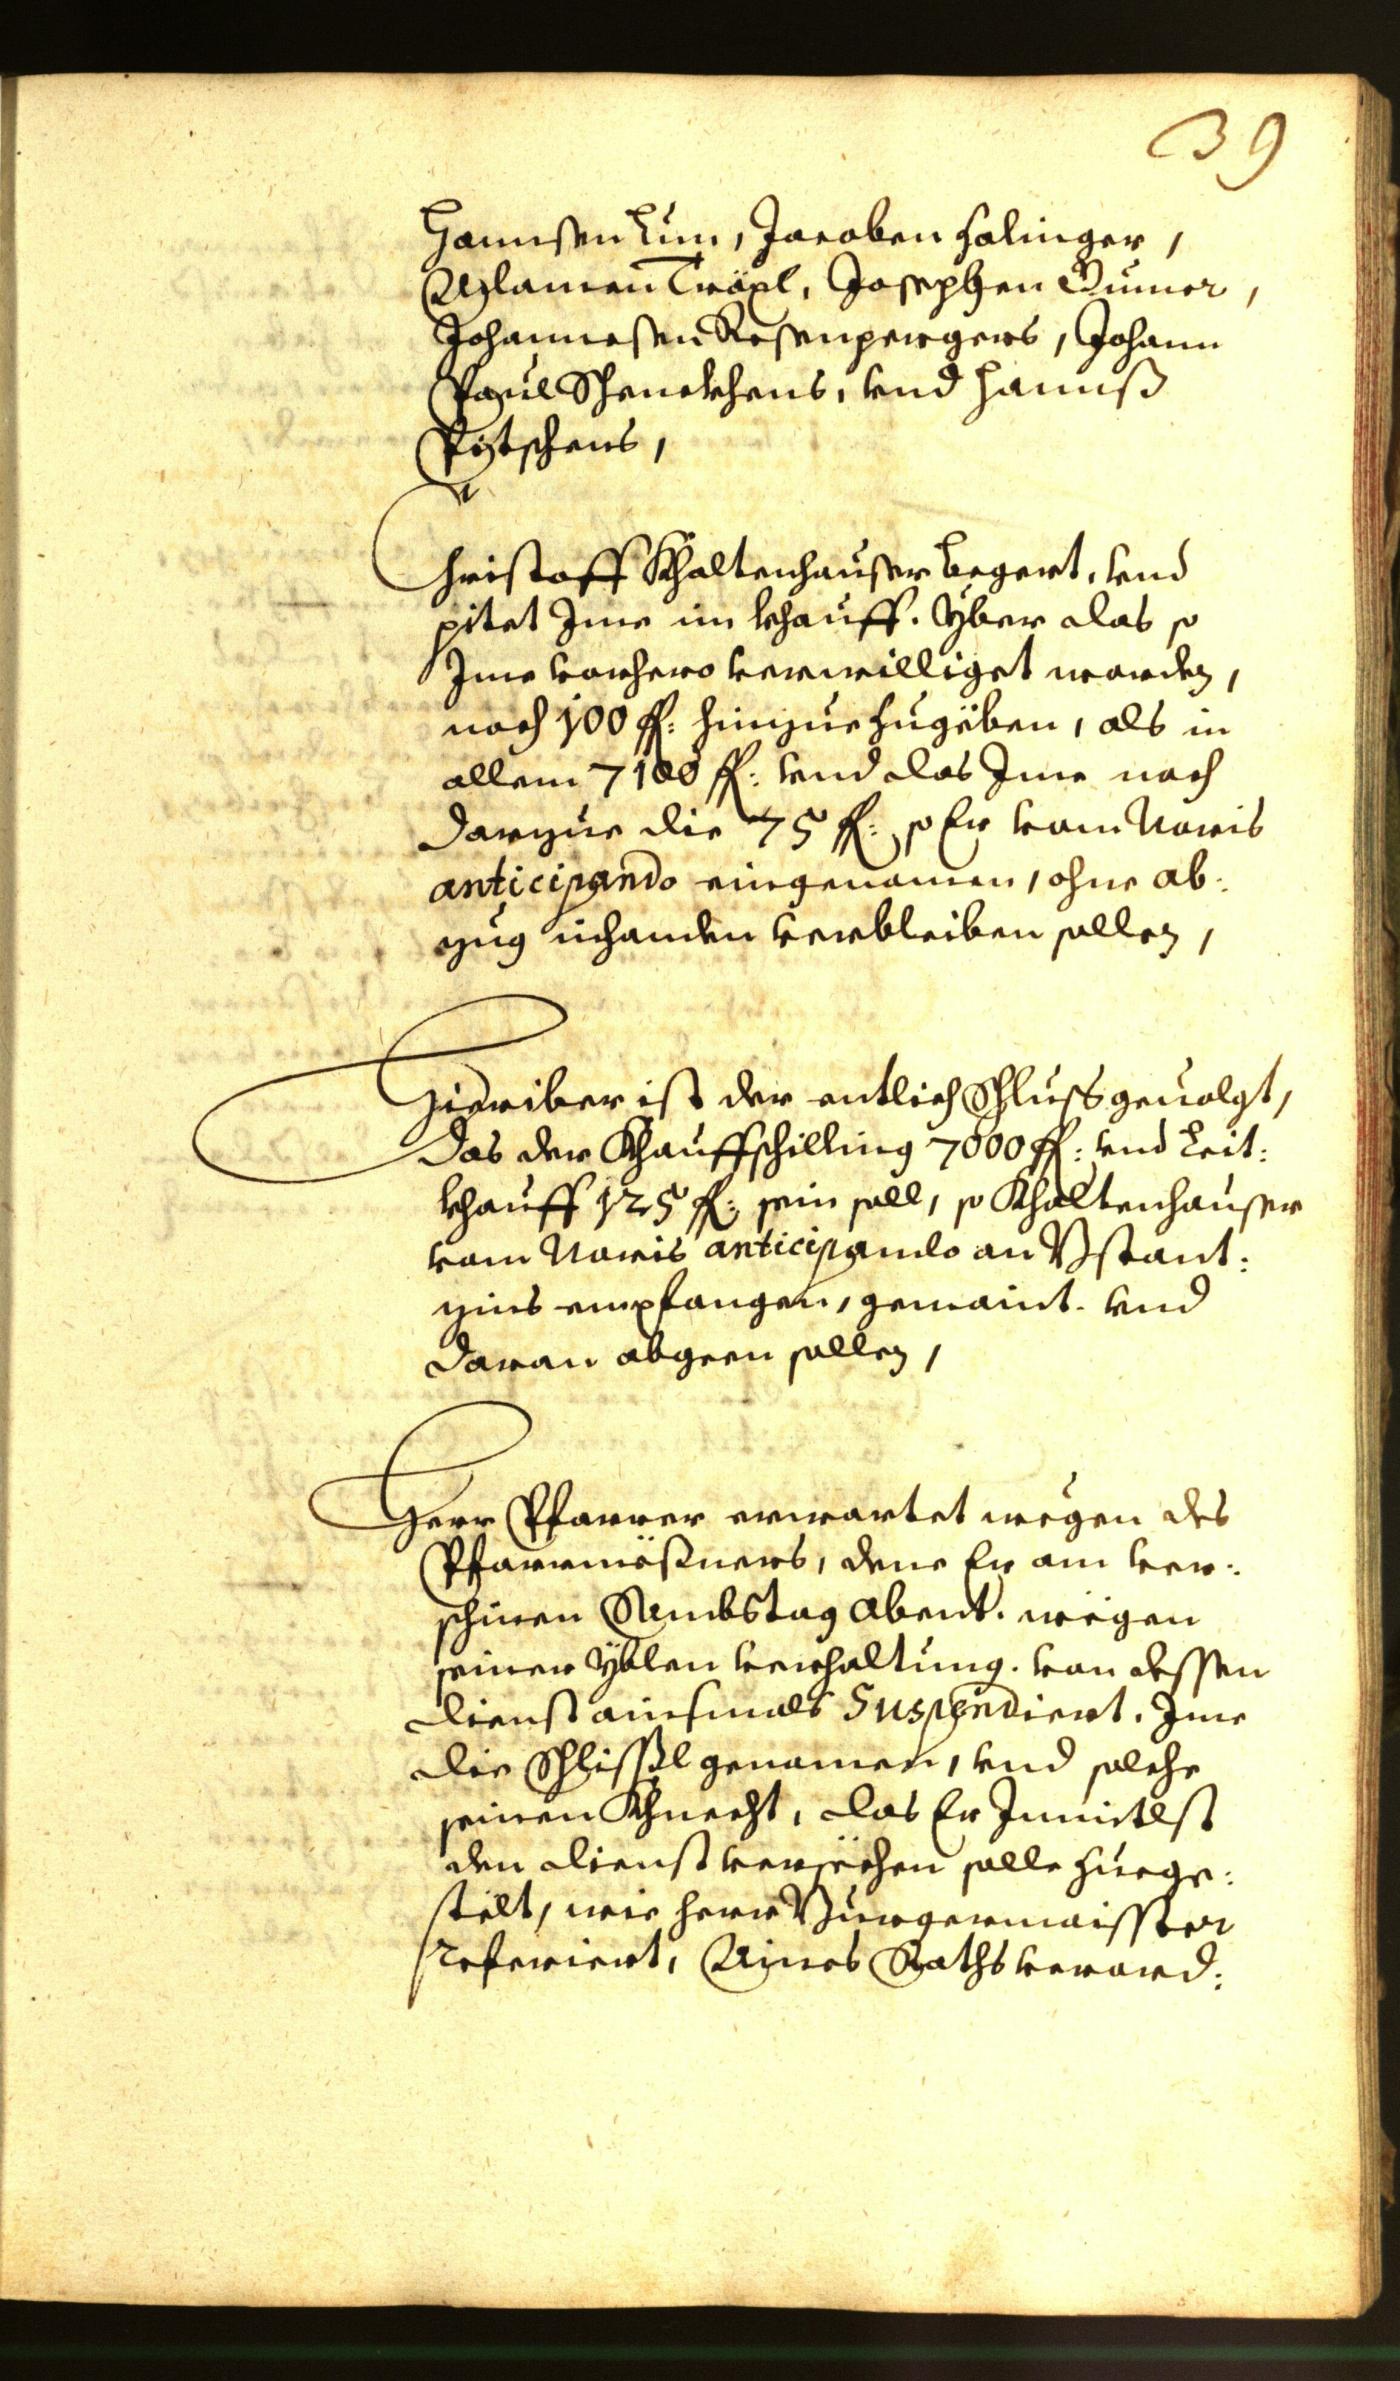 39
Hannsen Lun, Jacoben Halinger,
Adamen Träxl, Josephen Gumer,
Johannesen Rosenpergers, Johann
Paul Schenckhens, vnd Hannß
Pötschens,
Christoff Khaltenhauser begert, vnd
pitet Ime im khauff. Yber das so
Ime vorhero verwilliget worden,
noch 100 fl: hinzue zugeben, als in
allem 7100 fl: vnd das Ime noch
darzue die 75 fl: so Er vom Noris
anticipando eingenomen, ohne ab:
zug inhanden verbleiben sollen,
Hieriber ist der entlich Schluss geuolgt,
Das der Khauffschilling 7000 fl: vnd Leit:
khauff 125 fl: sein soll, so Khaltenhauser
vom Noris anticipando an Bstant:
zins empfangen, gemaint. vnd
daran abgeen sollen,
Herr Pfarrer erwartet wegen des
Pfarrmößners, dene Er am ver:
schinen Sambstag Abent. wegen
seiner yblen verhaltung. von dessen
dienst ainsmals Suspendiert. Ime
die Schlißl genomen, vnd solche
seinen Khnecht, das Er Inmitlst
den dienst versechen solle zuege:
stelt, wie herr Burgermaisster
referiert, Aines Raths verord: